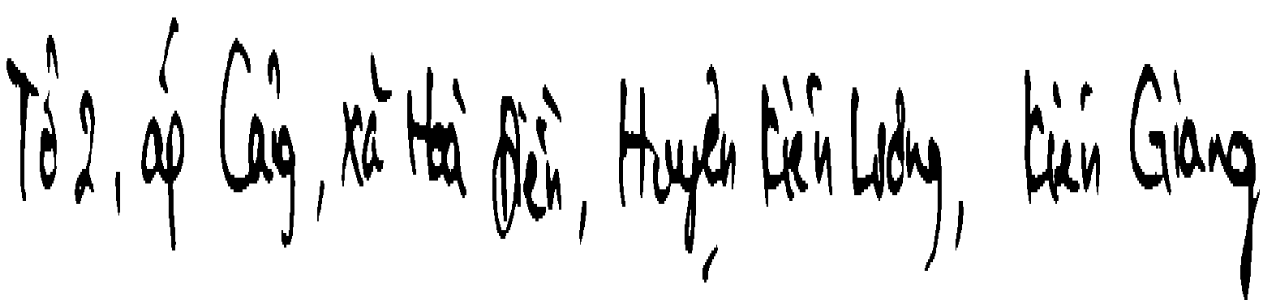 Tổ 2, ấp Cảng, xã Hoà Điền, Huyện Kiên Lương, Kiên Giang